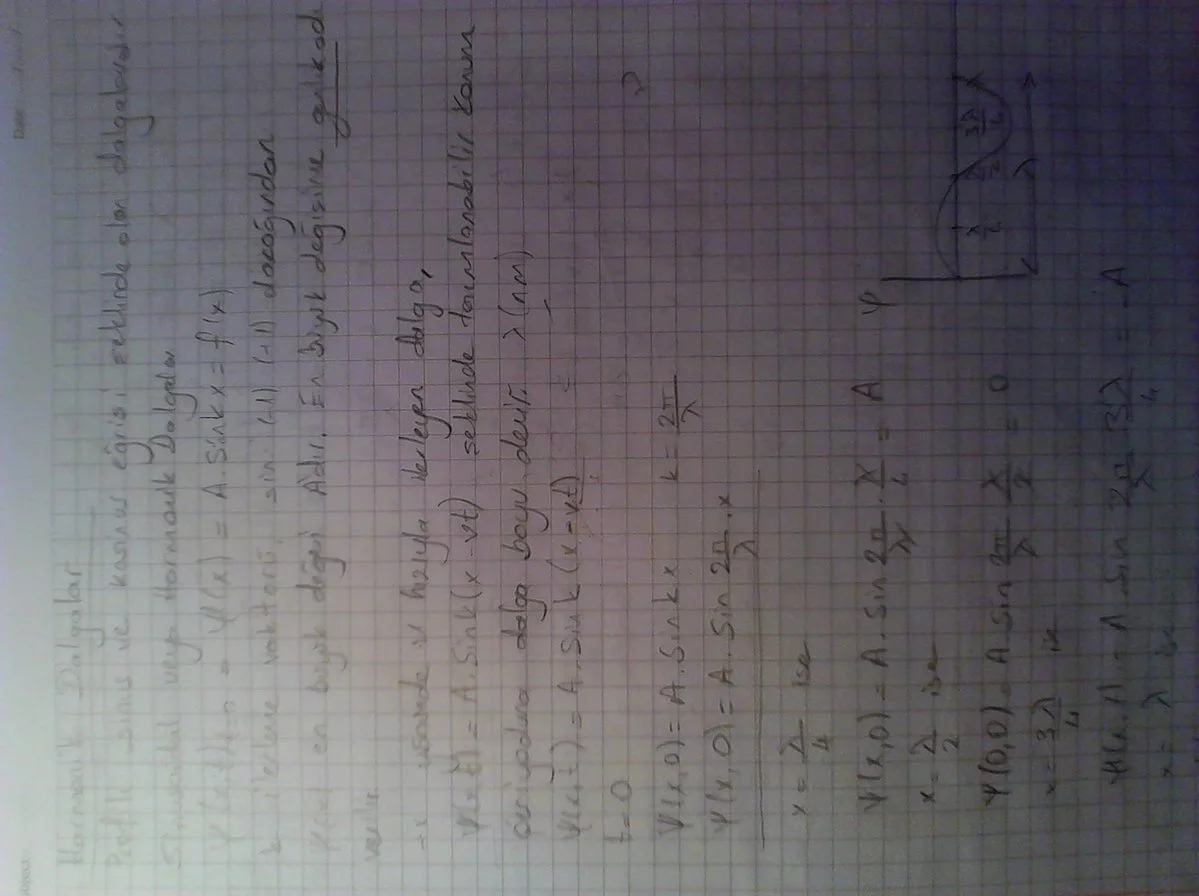 Harmonik Dalgalar
Profili sinüs ve kosinüs eğrisi şeklinde olan dalgalardır
Sinusoidal veya Harmonik Dalgalar
Ψ(x,t)t=0 = Ψ(x) = A.Sinkx = f(x)
k ilerleme vektörü, sin: (-1) (+1) aracağından
Ψ(x) en büyük değeri A'dır. En büyük değişime genlik adı
verilir
+x yönünde v hızıyla ilerleyen dalga,
Ψ(x,t) = A.Sink(x-vt) şeklinde tanımlanabilir konum
periyoduna dalga boyu denir. λ(nm)
Ψ(x,t) = A.Sink(x-vt)
t=0
Ψ(x,0) = A.Sinkx k = 2π/λ
Ψ(x,0) = A.Sin 2π/λ .x
x = λ/4 ise
Ψ(x,0) = A.Sin 2π/λ . λ/4 = A
x = λ/2 ise
Ψ(0,0) = A.Sin 2π/λ λ/2 = 0
x = 3λ/4 ise
A.Sin 2π/λ 3λ/4 = -A
x = λ ise
Ψ
λ/2 3λ/4 λ
λ